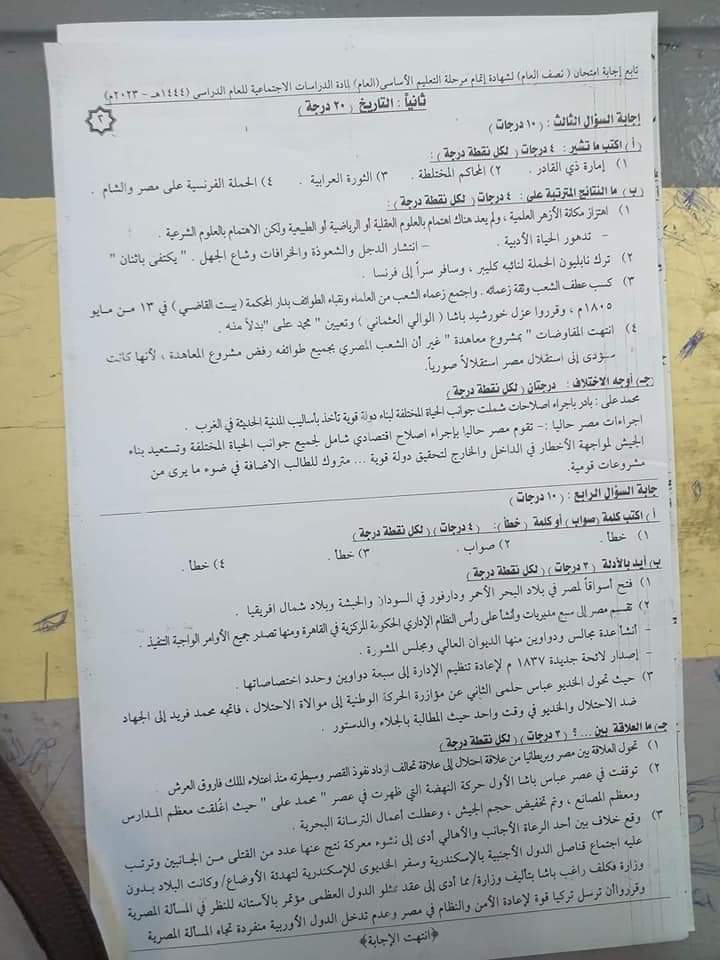 تابع إجابة امتحان ( نصف العام) لشهادة إتمام مرحلة التعليم الأساسى (العام) لمادة الدراسات الاجتماعية للعام الدراسى (١٤٤٤هـ – ٢٠٢٣م)
ثانياً : التاريخ ( ٢٠ درجة )
٣
إجابة السؤال الثالث : ( ١٠ درجات)
( أ ) اكتب ما تشير : ٤ درجات ( لكل نقطة درجة ) :
١) إمارة ذي القادر . ٢) المحاكم المختلطة . ٣) الثورة العرابية . ٤) الحملة الفرنسية على مصر والشام .
( ب ) ما النتائج المترتبة على : ٤ درجات ( لكل نقطة درجة ) :
١) اهتزاز مكانة الأزهر العلمية ، ولم يعد هناك اهتمام بالعلوم العقلية أو الرياضية أو الطبيعية ولكن الاهتمام بالعلوم الشرعية .
– تدهور الحياة الأدبية . – انتشار الدجل والشعوذة والخرافات وشاع الجهل . " يكتفى باثنان "
٢) ترك نابليون الحملة لنائبه كليبر ، وسافر سراً إلى فرنسا .
٣) كسب عطف الشعب وثقة زعمائه . واجتمع زعماء الشعب من العلماء ونقباء الطوائف بدار المحكمة (بيت القاضي) في ١٣ من مايو
١٨٠٥ م ، وقرروا عزل خورشيد باشا ( الوالي العثماني ) وتعيين " محمد على "بدلاً منه .
٤) انتهت المفاوضات " بمشروع معاهدة " غير أن الشعب المصري بجميع طوائفه رفض مشروع المعاهدة ، لأنها كانت
ستؤدى إلى استقلال مصر استقلالاً صورياً.
جـ) أوجه الاختلاف : درجتان ( لكل نقطة درجة )
محمد على : بادر باجراء اصلاحات شملت جوانب الحياة المختلفة لبناء دولة قوية تأخذ بأساليب المدنية الحديثة في الغرب .
اجراءات مصر حاليا :- تقوم مصر حاليا بإجراء اصلاح اقتصادي شامل لجميع جوانب الحياة المختلفة وتستعيد بناء
الجيش لمواجهة الأخطار في الداخل والخارج لتحقيق دولة قوية ... متروك للطالب الاضافة في ضوء ما يرى من
مشروعات قومية.
جابة السؤال الرابع : ( ١٠ درجات)
أ ) اكتب كلمة (صواب ) أو كلمة ( خطأ ) : ( ٤ درجات ) ( لكل نقطة درجة )
١) خطأ . ٢) صواب . ٣) خطأ . ٤) خطأ .
ب) أيد بالأدلة ( ٣ درجات ) ( لكل نقطة درجة )
١) فتح أسواقاً لمصر في بلاد البحر الأحمر ودارفور في السودان والحبشة وبلاد شمال افريقيا .
٢) تقسيم مصر إلى سبع مديريات وأنشأ على رأس النظام الإداري الحكومة المركزية في القاهرة ومنها تصدر جميع الأوامر الواجبة التنفيذ .
– أنشأ عدة مجالس ودواوين منها الديوان العالي ومجلس المشورة .
– إصدار لائحة جديدة ١٨٣٧ م لإعادة تنظيم الإدارة إلى سبعة دواوين وحدد اختصاصاتها .
٣) حيث تحول الخديو عباس حلمى الثاني عن مؤازرة الحركة الوطنية إلى موالاة الاحتلال ، فاتجه محمد فريد إلى الجهاد
ضد الاحتلال والخديو في وقت واحد حيث المطالبة بالجلاء والدستور .
جـ) ما العلاقة بين ... ؟ ( ٣ درجات ) ( لكل نقطة درجة )
١) تحول العلاقة بين مصر وبريطانيا من علاقة احتلال إلى علاقة تحالف ازداد نفوذ القصر وسيطرته منذ اعتلاء الملك فاروق العرش .
٢) توقفت في عصر عباس باشا الأول حركة النهضة التي ظهرت في عصر " محمد على " حيث اغُلقت معظم المدارس
ومعظم المصانع ، وتم تخفيض حجم الجيش ، وعطلت أعمال الترسانة البحرية .
٣) وقع خلاف بين أحد الرعاة الأجانب والأهالي أدى إلى نشوء معركة نتج عنها عدد من القتلى من الجانبين وترتب
عليه اجتماع قناصل الدول الأجنبية بالإسكندرية وسفر الخديوى للإسكندرية لتهدئة الأوضاع/ وكانت البلاد بدون
وزارة فكلف راغب باشا بتأليف وزارة/ مما أدى إلى عقد ممثلو الدول العظمى مؤتمر بالآستانه للنظر في المسألة المصرية
وقرروا أن ترسل تركيا قوة لإعادة الأمن والنظام في مصر وعدم تدخل الدول الأوربية منفردة تجاه المسألة المصرية
﴿انتهت الإجابة﴾